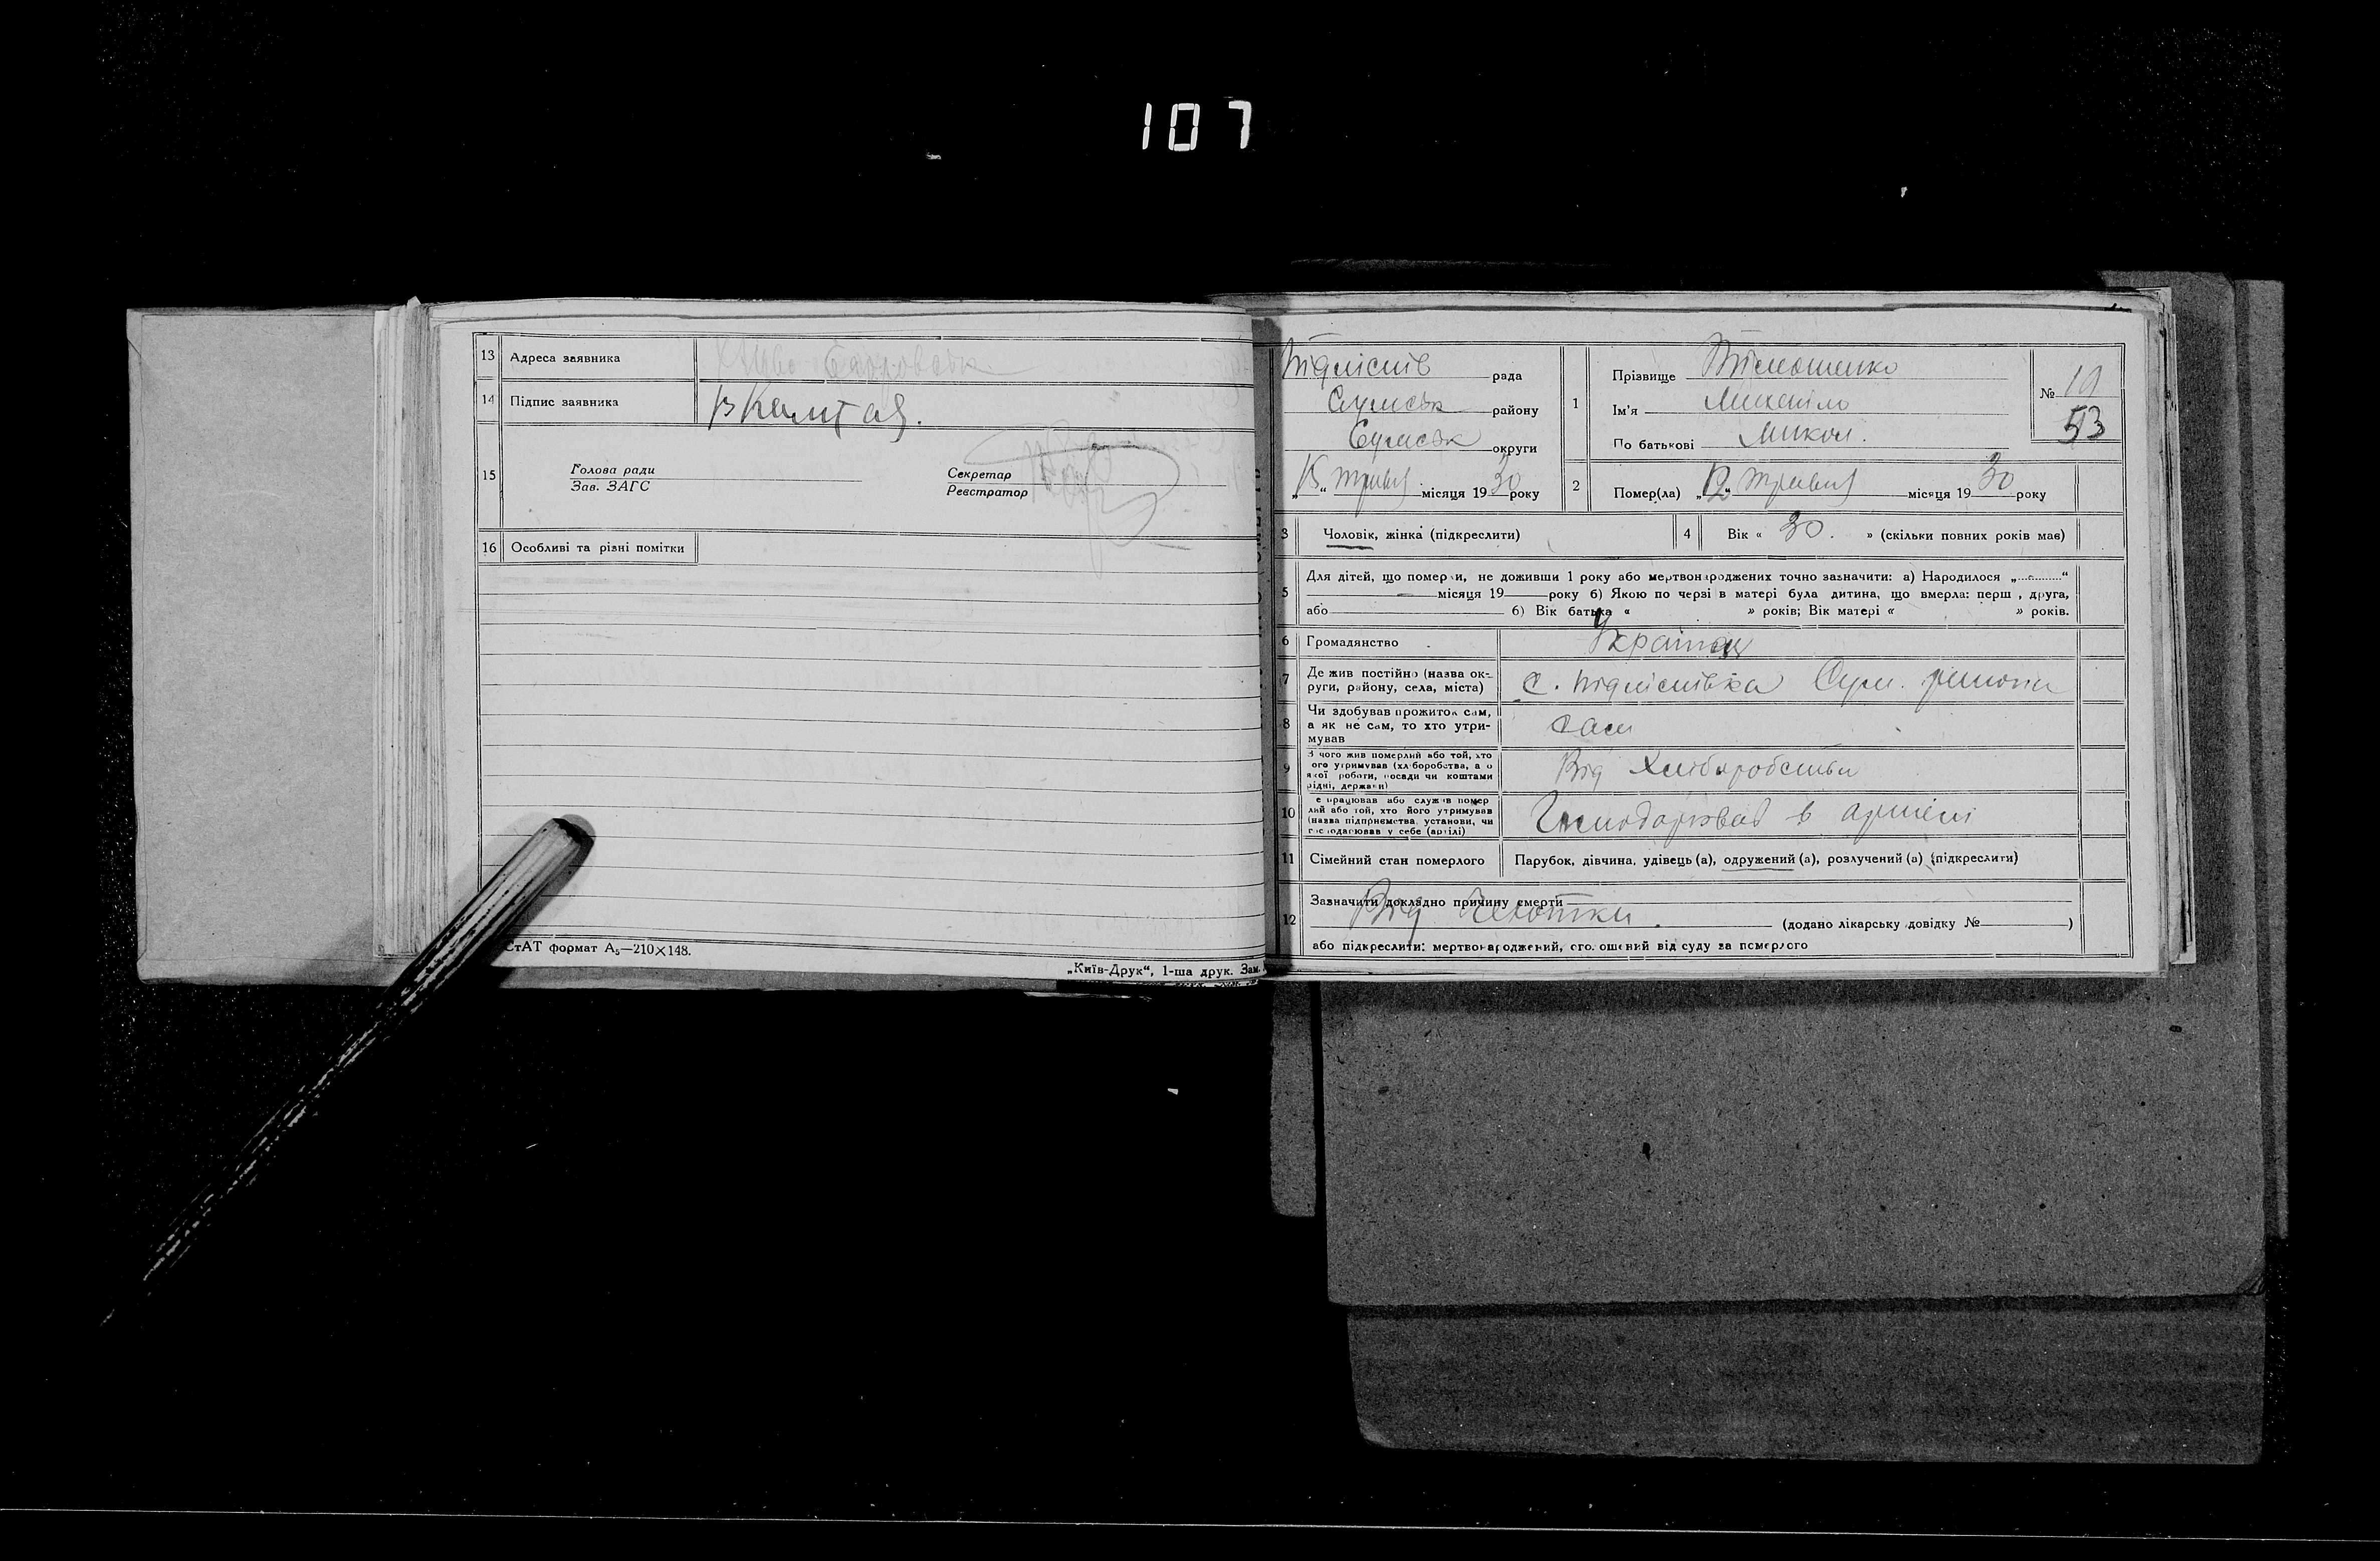 107
13 Адреса заявника
14 Підпис заявника
15 Голова ради
Зав. ЗАГС
Секретар
Реєстратор
16 Особливі та різні помітки
СтАТ формат А5—210×148.
„Київ-Друк“, 1-ша друк. Зам.
Підліснів рада
Сумськ району
Сумськ округи
„13“ травня місяця 1930 року
1 Прізвище Тімошенко
Ім'я Михайло
По батькові Микол.
№ 19
53
2 Помер(ла) „12“ травня місяця 1930 року
3 Чоловік, жінка (підкреслити)
4 Вік « 30. » (скільки повних років має)
5 Для дітей, що померли, не доживши 1 року або мертвонароджених точно зазначити: а) Народилося „ “
місяця 19 року б) Якою по черзі в матері була дитина, що вмерла: перш , друга,
або 6) Вік батька « » років; Вік матері « » років.
6 Громадянство Українец
7 Де жив постійно (назва ок-
руги, району, села, міста) с. Підліснівка Сум. района
8 Чи здобував прожиток сам,
а як не сам, то хто утри-
мував сам
9 З чого жив померлий або той, хто
ого утримував (хліборобства, а о
якої роботи, посади чи коштами
рідні, держави) Від Хліборобства
10 е працював або служив помер
лий або той, хто його утримував
(назва підприємства, установи, чи
господарював у себе (артілі) Господарював в артілі
11 Сімейний стан померлого Парубок, дівчина, удівець (а), одружений (а), розлучений (а) (підкреслити)
12 Зазначити докладно причину смерти
Від Чехотки. (додано лікарську довідку № )
або підкреслити: мертвонароджений, оголошений від суду за померлого